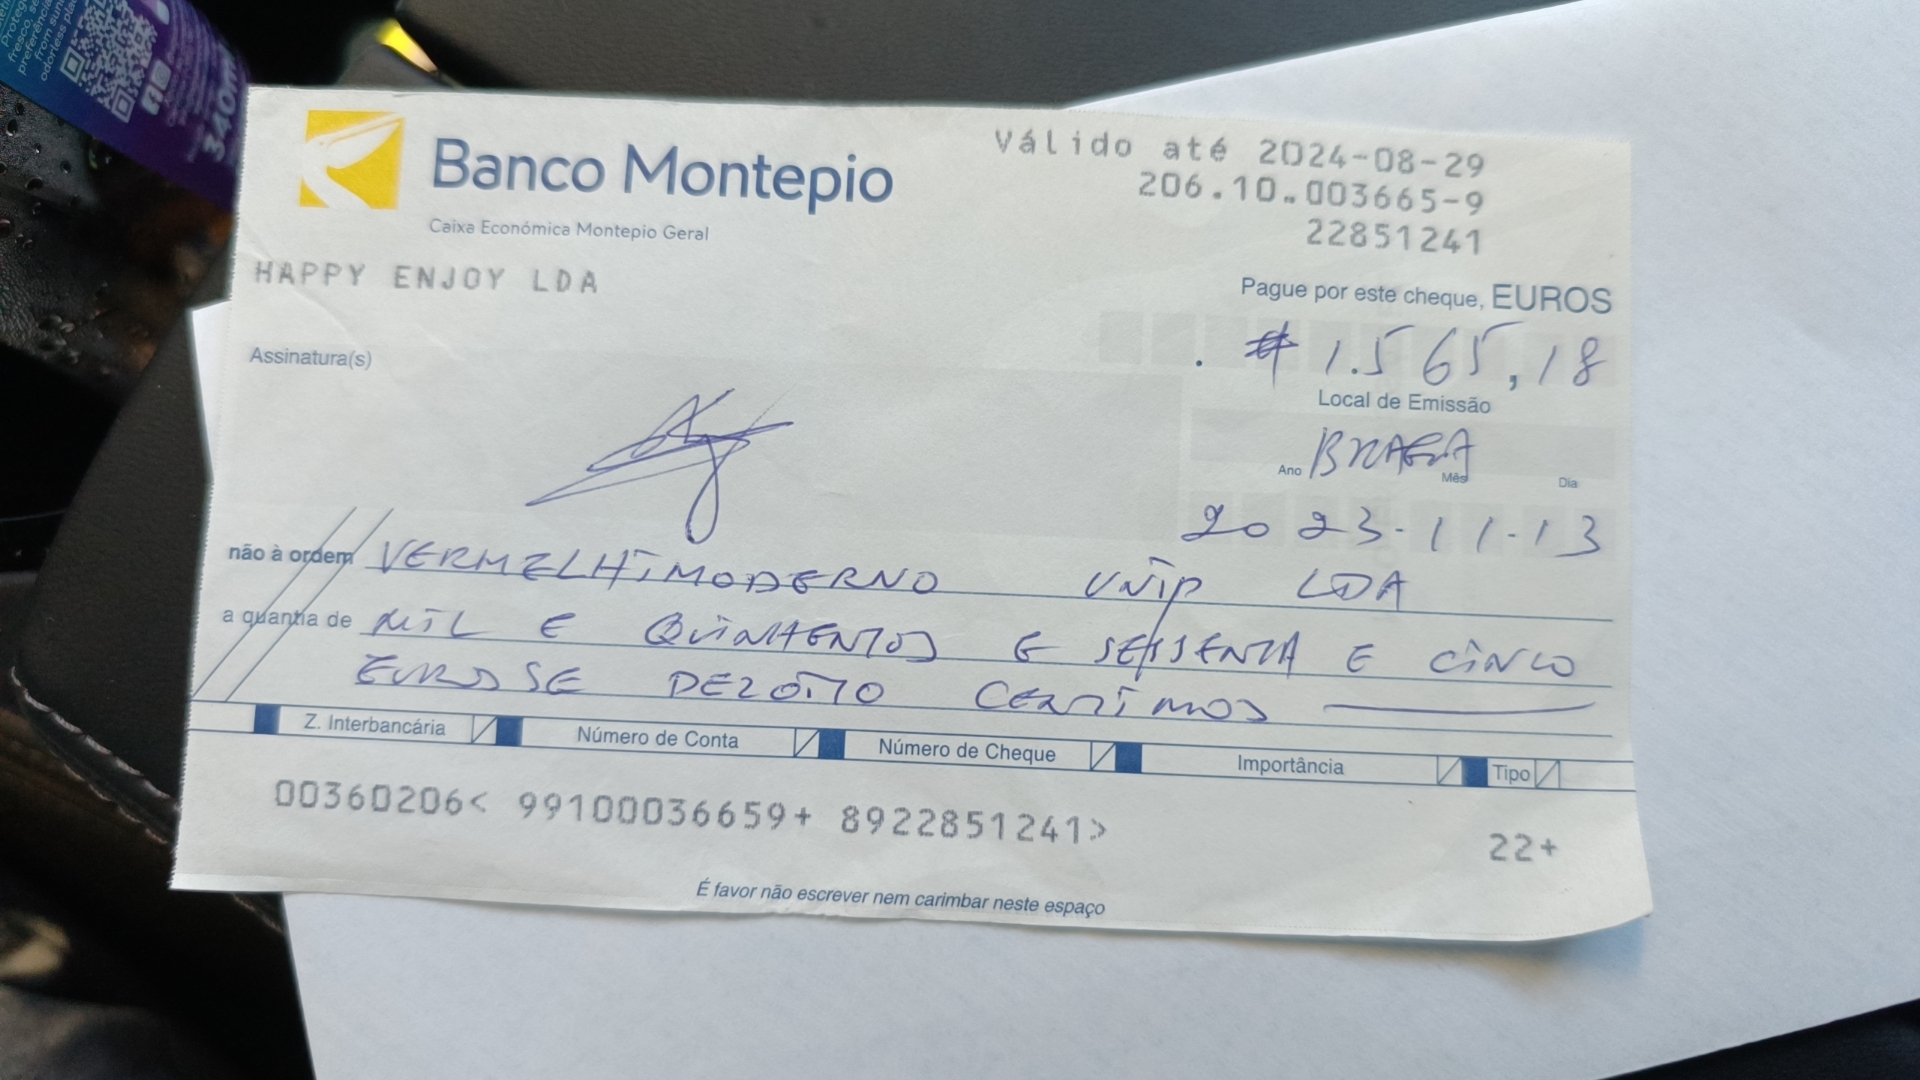 Banco Montepio
Caixa Económica Montepio Geral
Válido até 2024-08-29
206.10.003665-9
22851241
HAPPY ENJOY LDA
Pague por este cheque, EUROS
# 1.565,18
Assinatura(s)
Local de Emissão
BRAGA
Ano Mês Dia
2023-11-13
não à ordem VERMELHIMODERNO UNIP LDA
a quantia de MIL E QUINHENTOS E SESSENTA E CINCO
EUROS E DEZOITO CENTIMOS
Z. Interbancária Número de Conta Número de Cheque Importância Tipo
00360206< 99100036659+ 8922851241> 22+
É favor não escrever nem carimbar neste espaço
340m